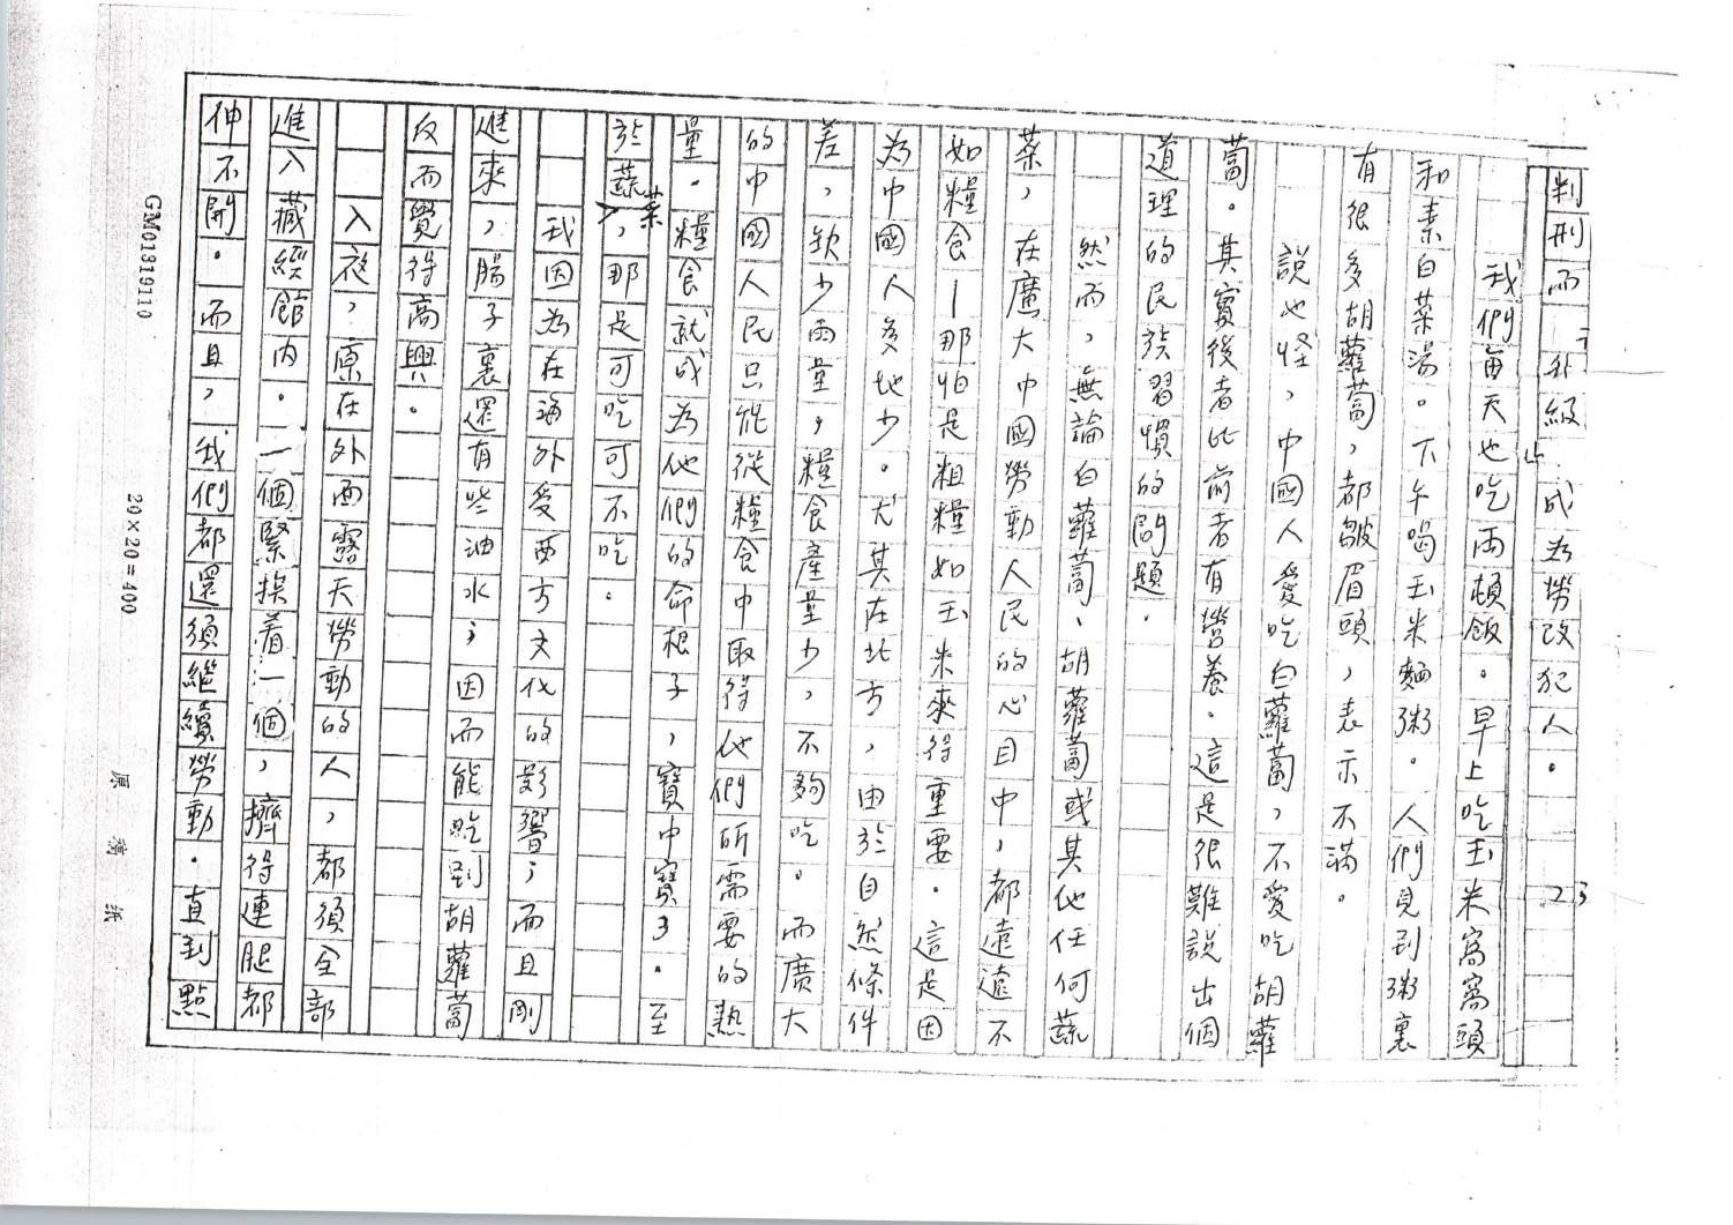 判刑而升級成為勞改犯人。
23
我們每天也吃兩頓飯。早上吃玉米窩窩頭
和素白菜湯。下午喝玉米麵粥。人們見到粥裏
有很多胡蘿蔔,都皺眉頭,表示不滿。
說也怪,中國人愛吃白蘿蔔,不愛吃胡蘿
蔔。其實後者比前者有營養。這是很難說出個
道理的民族習慣的問題。
然而,無論白蘿蔔、胡蘿蔔或其他任何蔬
菜,在廣大中國勞動人民的心目中,都遠遠不
如糧食—那怕是粗糧如玉米來得重要。這是因
為中國人多地少。尤其在北方,由於自然條件
差,缺少雨量,糧食產量少,不夠吃。而廣大
的中國人民只能從糧食中取得他們所需要的熱
量。糧食就成為他們的命根子,寶中寶了。至
於蔬菜,那是可吃可不吃。
我因為在海外受西方文化的影響;而且剛
進來,腸子裏還有些油水;因而能吃到胡蘿蔔
反而覺得高興。
入夜,原在外面露天勞動的人,都須全部
進入藏經館內。一個緊挨着一個,擠得連腿都
伸不開。而且,我們都還須繼續勞動。直到點
GM01319110
20×20=400
原稿紙